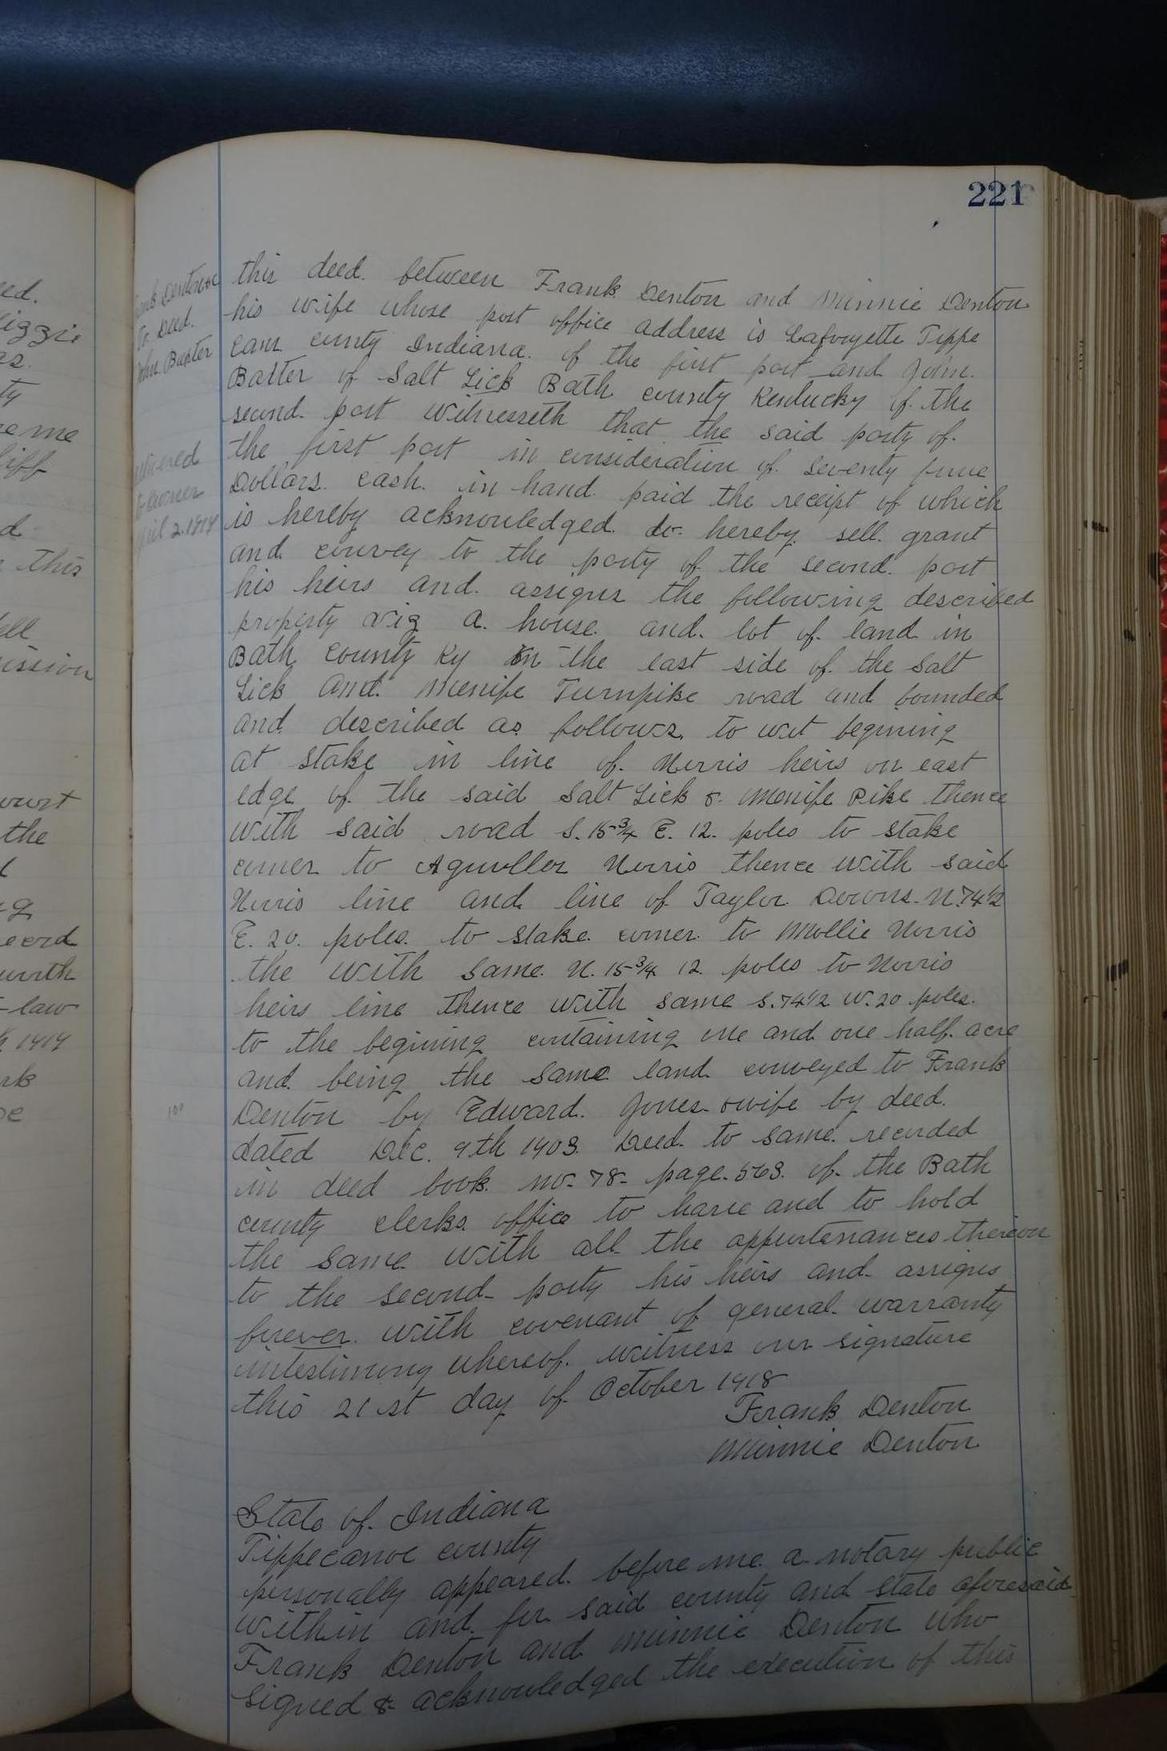 221
this deed. between Frank Denton and Minnie Denton
his wife whose post office address is Lafayette Tippe
cam county Indiana. of the first part and John.
Baxter of Salt Lick Bath county Kentucky of the
second part witnesseth that the said party of.
the first part in consideration of Seventy five
Dollars. cash. in hand paid the receipt of which
is hereby acknowledged do. hereby. sell. grant
and. convey to the party of the second. part
his heirs and. assigns the following described
property viz a. house. and. lot of. land in
Bath county Ky on the east side of the Salt
Lick And. Menife Turnpike road and bounded
and described as follows. to wit begining
at stake in line of. Norris heirs on east
edge of the said Salt Lick & Menife Pike thence
with said road S. 15 3/4 E. 12. poles to stake
corner to Norris thence with said
Norris line and line of Taylor N. 74 1/2
E. 20. poles. to stake. corner to Mollie Norris
the with same. N. 15 3/4 12 poles to Norris
heirs line thence with same S. 74 1/2 W. 20 poles.
to the begining containing one and one half. acre
and being the same land conveyed to Frank
Denton by Edward. Jones & wife by deed.
dated Dec. 9th 1903. Deed. to same. recorded
in deed book. no. 78- page. 563. of the Bath
county clerks. office to have and to hold
the same with all the appurtenances thereon
to the second- party his heirs and- assigns
forever. with covenant of general. warranty
intestimony whereof. witness our signature
this 21st day of October 1918
Frank Denton
Minnie Denton
State of. Indiana
Tippecanoe county
personally appeared. before me. a. notary public
within and. for said county and state aforesaid
Frank Denton and Minnie Denton who
signed & acknowledged the execution of this
To Deed.
John. Baxter
ed.
as.
ty
me
iff
d
this
ell
ission
the
ecord
law
1919
rk